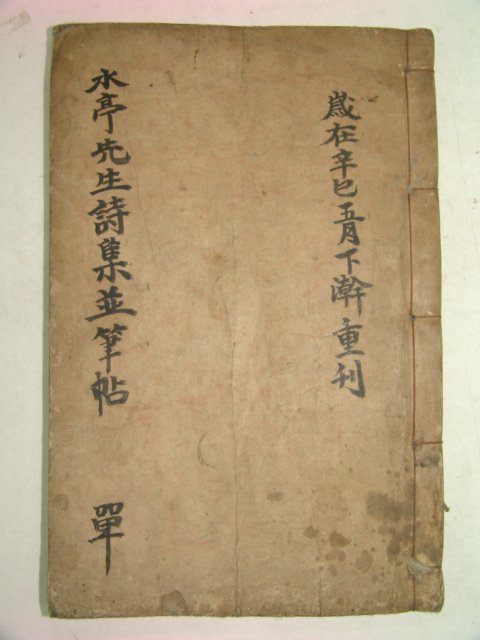 歲在辛巳五月下澣重刊
水亭先生詩集並筆帖
單